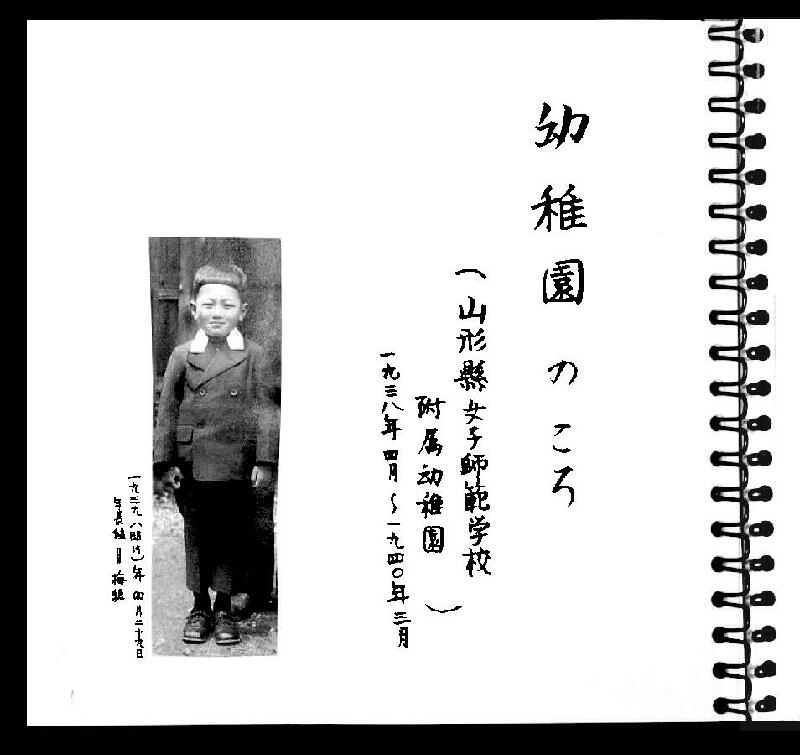 幼稚園のころ
(山形縣女子師範学校
附属幼稚園)
一九三八年四月~一九四〇年三月
一九三九(昭14)年四月二十九日
年長組